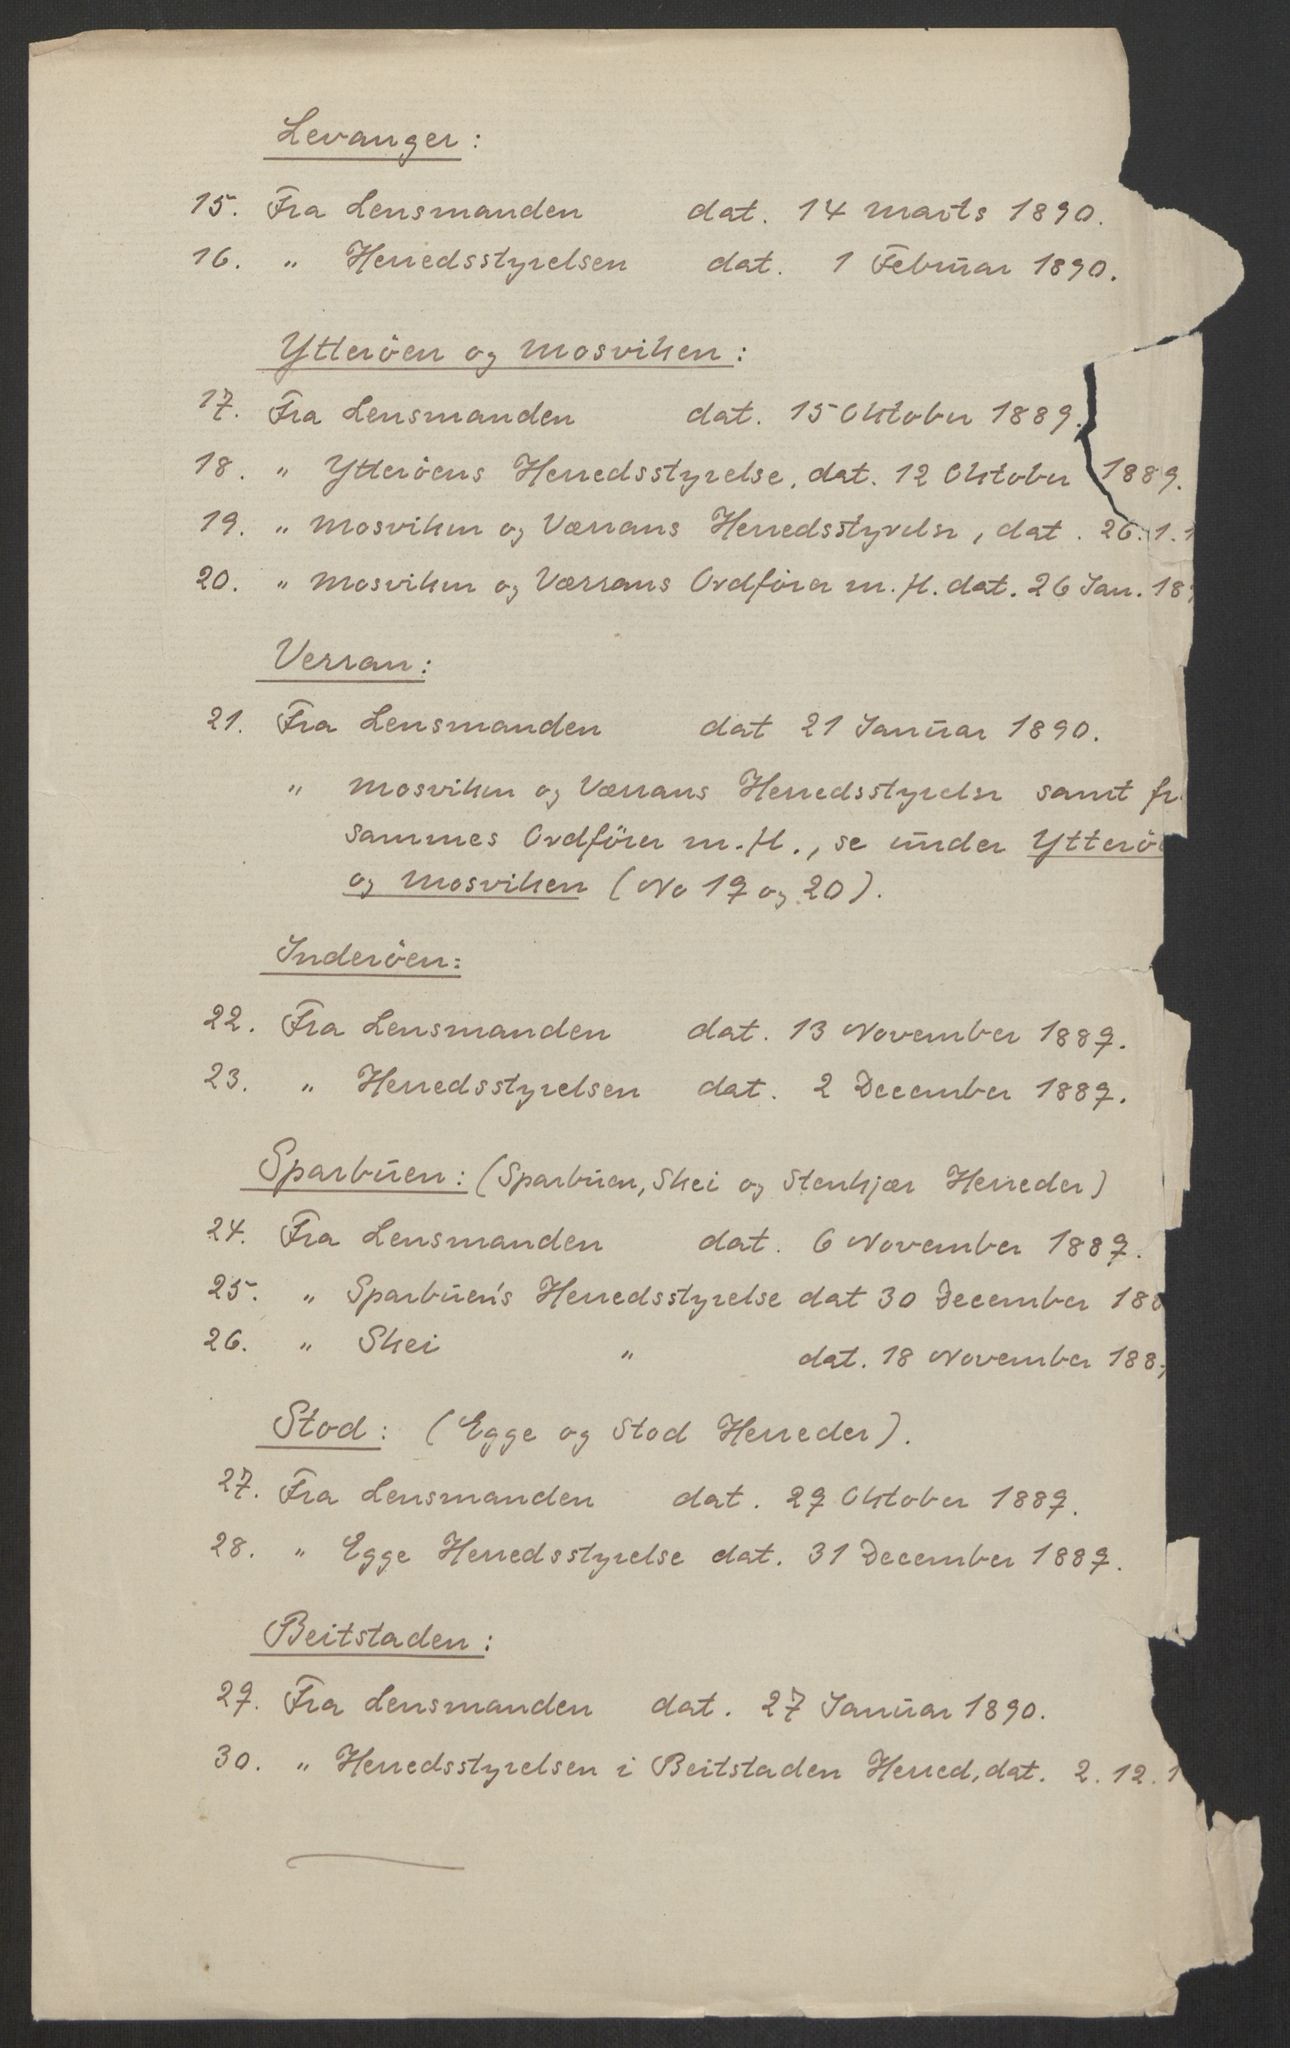 Levanger:
15. Fra Lensmanden dat. 14 Marts 1890.
16. " Herredsstyrelsen dat. 1 Februar 1890.
Ytteröen og Mosviken:
17. Fra Lensmanden dat. 15 Oktober 1889.
18. " Ytteröens Herredsstyrelse, dat. 12 Oktober 1889.
19. " Mosviken og Værrans Herredsstyrelse, dat. 26.1.1
20. " Mosviken og Værrans Ordförer m. fl. dat. 26 Jan. 18
Verran:
21. Fra Lensmanden dat 21 Januar 1890.
" Mosviken og Værrans Herredsstyrelse samt fr
sammes Ordförer m. fl., se under Ytterö
og Mosviken (No 19 og 20).
Inderöen:
22. Fra Lensmanden dat. 13 November 1889.
23. " Herredsstyrelsen dat. 2 December 1889.
Sparbuen: (Sparbuen, Skei og Stenkjær Herreder)
24. Fra Lensmanden dat. 6 November 1889.
25. " Sparbuen's Herredsstyrelse dat 30 December 188
26. " Skei " dat. 18 November 188
Stod: (Egge og Stod Herreder).
27. Fra Lensmanden dat. 29 Oktober 1889.
28. " Egge Herredsstyrelse dat. 31 December 1889.
Beitstaden:
29. Fra Lensmanden dat. 27 Januar 1890.
30. " Herredsstyrelsen i Beitstaden Herred, dat. 2.12.1